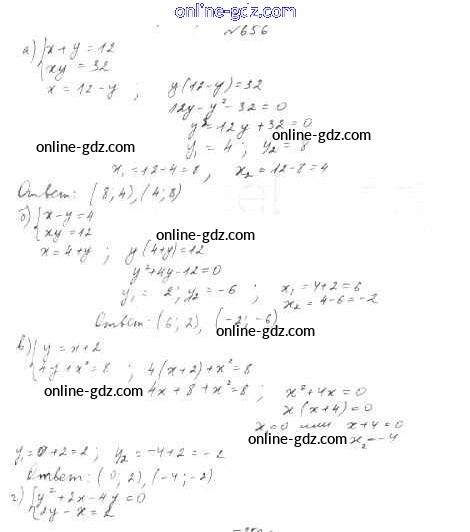 online-gdz.com
№656
а) {x + y = 12
{xy = 32
x = 12 - y ; y(12 - y) = 32
12y - y² - 32 = 0
y² - 12y + 32 = 0
online-gdz.com
online-gdz.com
y₁ = 4 ; y₂ = 8
x₁ = 12 - 4 = 8 , x₂ = 12 - 8 = 4
online-gdz.com
Ответ: (8; 4), (4; 8)
б) {x - y = 4
{xy = 12
online-gdz.com
x = 4 + y ; y(4 + y) = 12
y² + 4y - 12 = 0
y₁ = 2; y₂ = -6 ; x₁ = 4 + 2 = 6
x₂ = 4 - 6 = -2
Ответ: (6; 2), (-2; -6)
online-gdz.com
в) {y = x + 2
{4y + x² = 8 ; 4(x + 2) + x² = 8
online-gdz.com
4x + 8 + x² = 8 ; x² + 4x = 0
x(x + 4) = 0
x₁ = 0 или x + 4 = 0
online-gdz.com
x₂ = -4
y₁ = 0 + 2 = 2 ; y₂ = -4 + 2 = -2
Ответ: (0; 2), (-4; -2)
г) {y² + 2x - 4y = 0
{2y - x = 2